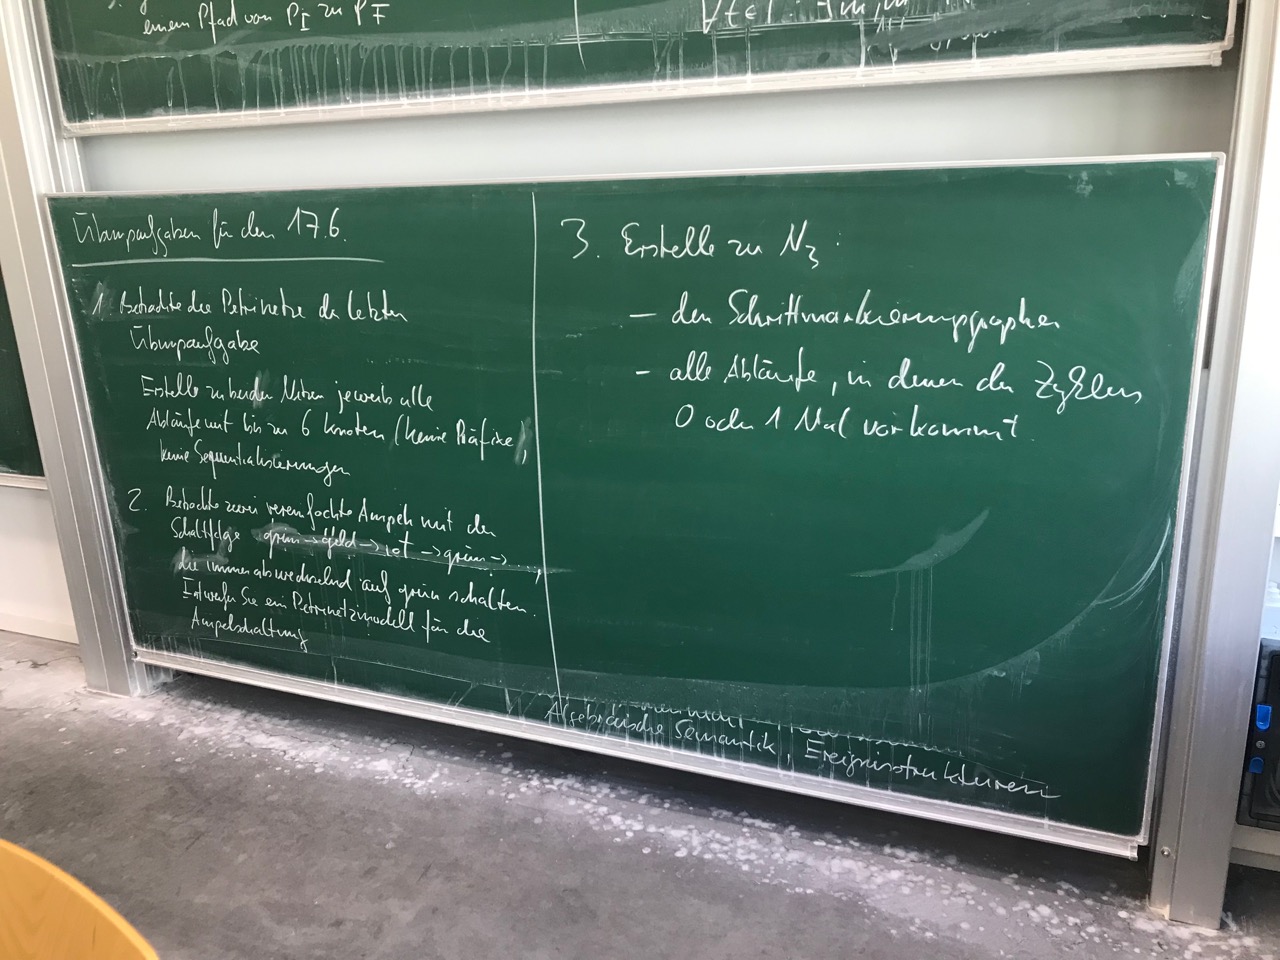 einem Pfad von P_I zu P_F
∀t∈T:
Übungsaufgaben für den 17.6.
1. Betrachte die Petrinetze der letzten
Übungsaufgabe
Erstelle zu beiden Netzen jeweils alle
Abläufe mit bis zu 6 Knoten (keine Präfixe),
keine Sequentialisierungen
2. Betrachte zwei vereinfachte Ampeln mit der
Schaltfolge grün → gelb → rot → grün → ...,
die immer abwechselnd auf grün schalten.
Entwerfen Sie ein Petrinetzmodell für die
Ampelschaltung
3. Erstelle zu N_3:
– den Schrittmarkierungsgraphen
– alle Abläufe, in denen der Zyklus
0 oder 1 Mal vorkommt.
Algebraische Semantik, Ereignisstrukturen